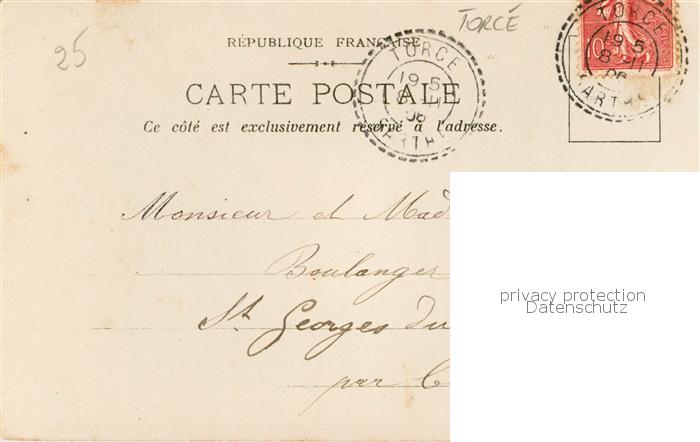 25
TORCÉ
RÉPUBLIQUE FRANÇAISE
CARTE POSTALE
Ce côté est exclusivement réservé à l'adresse.
TORCE
19-5
8-11
06
SARTHE
10
TORCE
19-5
8-11
06
SARTHE
Monsieur et Mad
Boulanger
St Georges du
par C
privacy protection
Datenschutz